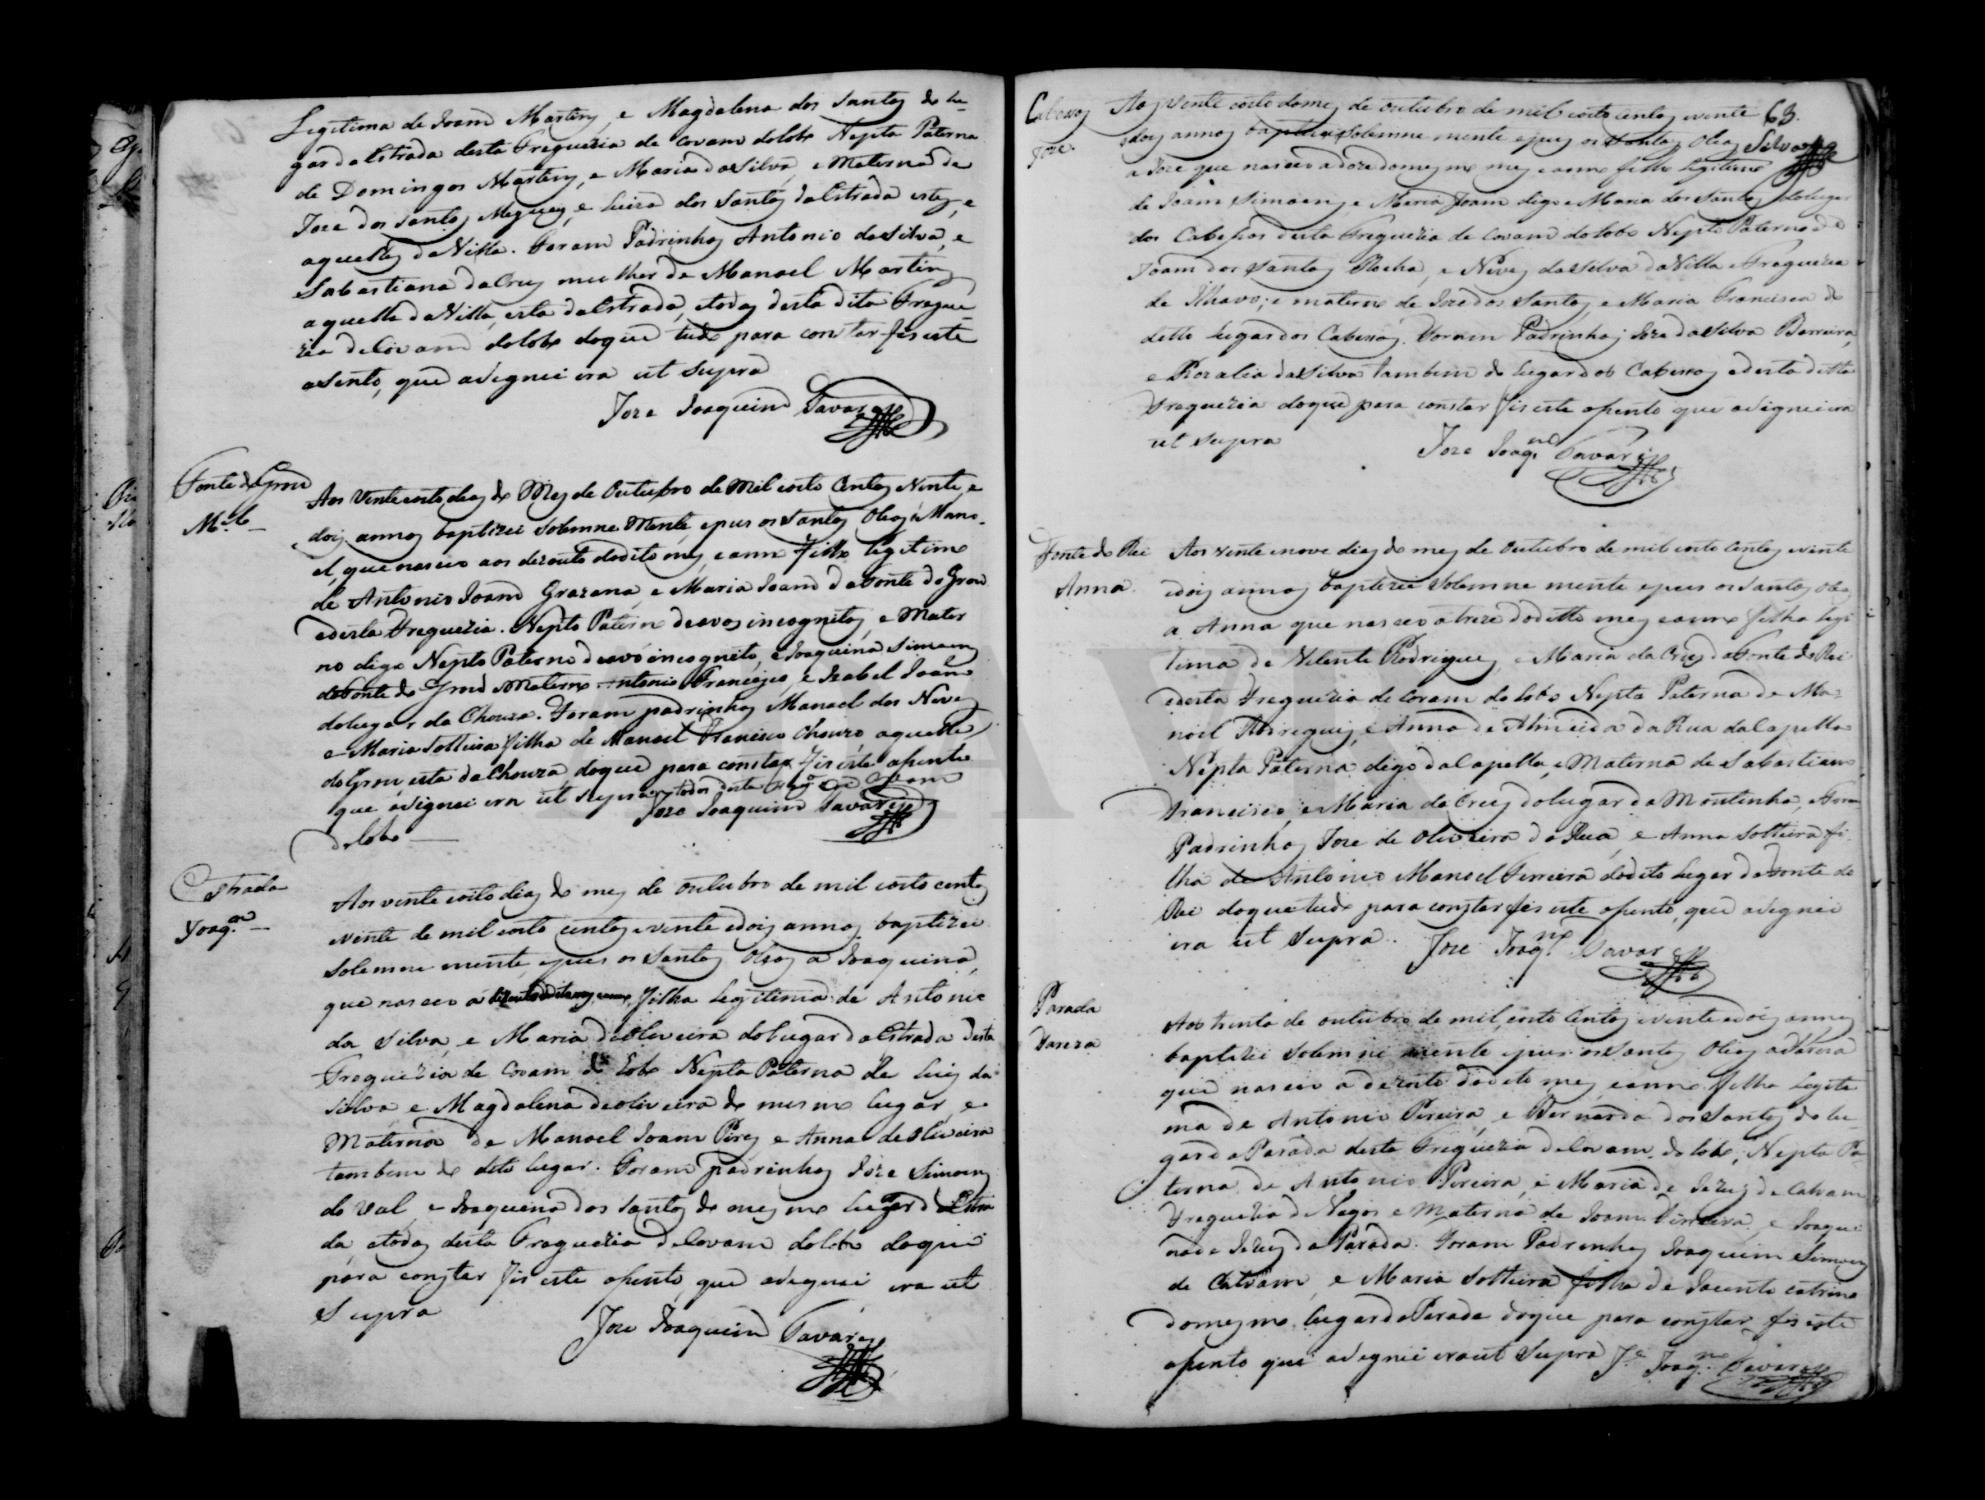 Legitima de Joam Martins, e Magdalena dos Santos do lu-
gar da Estrada desta Freguezia de Covam do Lobo Nepta Paterna
de Domingos Martins, e Maria da Silva, e Materna de
Joze dos Santos Megueis, e Luiza dos Santos da Estrada estes, e
aquelles da Villa. Foram Padrinhos Antonio da Silva, e
Sabastiana da Cruz mulher de Manoel Martins
aquelle da Villa, esta da Estrada, e todos desta dita Fregue-
zia de Covam do lobo do que tudo para constar fis este
asento, que asignei era ut Supra
Joze Joaquim Tavares
Fonte do Grou
M.el
Aos vente eoito dias do Mes de Outubro de Mil eoito Centos Vinte, e
dois annos baptizei Solemne Mente, epus os Santos Oleos a Mano-
el, que nasceo aos dezouto do dito mes, e anno filho legitimo
de Antonio Joam Grazena, e Maria Joam da Fonte do Grou
e desta Freguezia. Nepto Paterno de avos incognitos, e Mater
no digo Nepto Paterno de avó incognito, e Joaquina Simoens
da Fonte do Grou e Materno Antonio Francisco, e Izabel Joam
do lugar da Chouza. Foram padrinhos Manoel dos Neves
e Maria Solteira filha de Manoel Francisco Chouzo aquelle
do Grou, esta da Chouza, do que para constar fis este asento
que asignei era ut supra, e todos desta Freg.a de Covam
Joze Joaquim Tavares
do lobo
Estrada
Joaq.na
Aos vente eoito dias do mes de outubro de mil eoito centos
evente de mil eoito centos evente edois annos baptizei
Solemne mente, epus os Santos Oleos a Joaquina,
que nasceo a dezouto do dito mes e anno, filha Legitima de Antonio
da Silva, e Maria de Oliveira do lugar da Estrada desta
Freguezia de Covam do Lobo Nepta Paterna de Luis da
Silva, e Magdalena de oliveira do mesmo lugar, e
Materna de Manoel Joam Pires e Anna de Oliveira
tambem do dito lugar. Foram padrinhos Joze Simoens
do Val, e Joaquina dos Santos do mesmo lugar da Estra
da, e todos desta Freguezia de Covam do lobo do que
para constar fis este asento, que asignei era ut
Supra
Joze Joaquim Tavares
63.
Silva
Cabesos
Joze
Aos vente eoito do mes de outubro de mil eoito centos evente
e dois annos baptizei Solemne mente epus os Santos Oleos
a Joze que nasceo a doze do mesmo mes e anno filho legitimo
de Joam Simoens, e Maria Joam digo e Maria dos Santos do lugar
dos Cabesos desta Freguezia de Covam do lobo Nepto Paterno de
Joam dos Santos Rocha, e Neves da Silva da Villa e Freguezia
de Ilhavo; e materno de Joze dos Santos, e Maria Francisca do
detto lugar dos Cabesos. Foram Padrinhos Joze da Silva Barreira,
e Rozalia da Silva tambem do lugar dos Cabesos e desta detta
Freguezia do que para constar fis este asento que asignei era
ut supra
Joze Joaq.m Tavares
Fonte do Rei
Anna
Aos vente enove dias do mes de Outubro de mil eoito Centos evente
edois annos baptizei Solemne mente epus os Santos Oleos
a Anna que nasceo a treze do detto mes e anno filha legi
tima de Velente Rodrigues, e Maria da Cruz da Fonte do Rei
e desta Freguezia de Covam do lobo Nepta Paterna de Ma-
noel Rodrigues, e Anna de Almeida da Rua da Capella
Nepta Paterna digo da Capella, e Materna de Sabastiam
Francisco, e Maria da Cruz do lugar da Moutinha, Foram
Padrinhos Joze de Oliveira da Rua, e Anna Solteira fi
lha de Antonio Manoel Ferreira do dito lugar da Fonte do
Rei do que tudo para constar fis este asento, que asignei
era ut Supra.
Joze Joaq.m Tavares
Parada
Tareza
Aos trinta de outubro de mil eoito Centos evente edois annos
baptizei Solemne mente epus os Santos Oleos a Tareza
que nasceo a dezouto do dito mes e anno filha Legite
ma de Antonio Pereira, e Bernarda dos Santos do lu-
gar da Parada desta Freguezia de Covam do lobo, Nepta Pa-
terna de Antonio Pereira, e Maria de Jezus de Calvam
Freguezia de Vagos e Materna de Joam Ferreira, e Joaqui
na de Jezus da Parada. Foram Padrinhos Joaquim Simoens
de Calvam, e Maria Solteira filha de Jacinto
do mesmo lugar da Parada do que para constar fis este
asento que asignei era ut Supra J.e Joaq.m Tavares